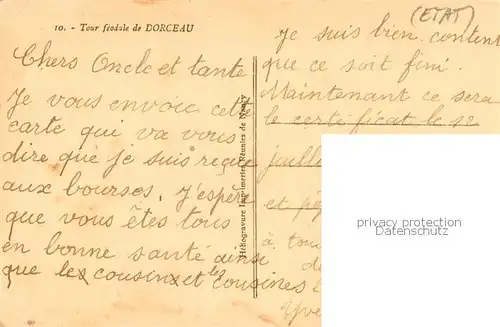 10. - Tour féodale de DORCEAU
Chers Oncle et tante
Je vous envoie cette
carte qui va vous
dire que je suis reçue
aux bourses. J'espère
que vous êtes tous
en bonne santé ainsi
que les cousins et les cousines
Héliogravure Imprimeries Réunies de Nancy
(ETAT)
Je suis bien content
que ce soit fini.
Maintenant ce sera
le certificat le 12
juillet
et
à
privacy protection
Datenschutz